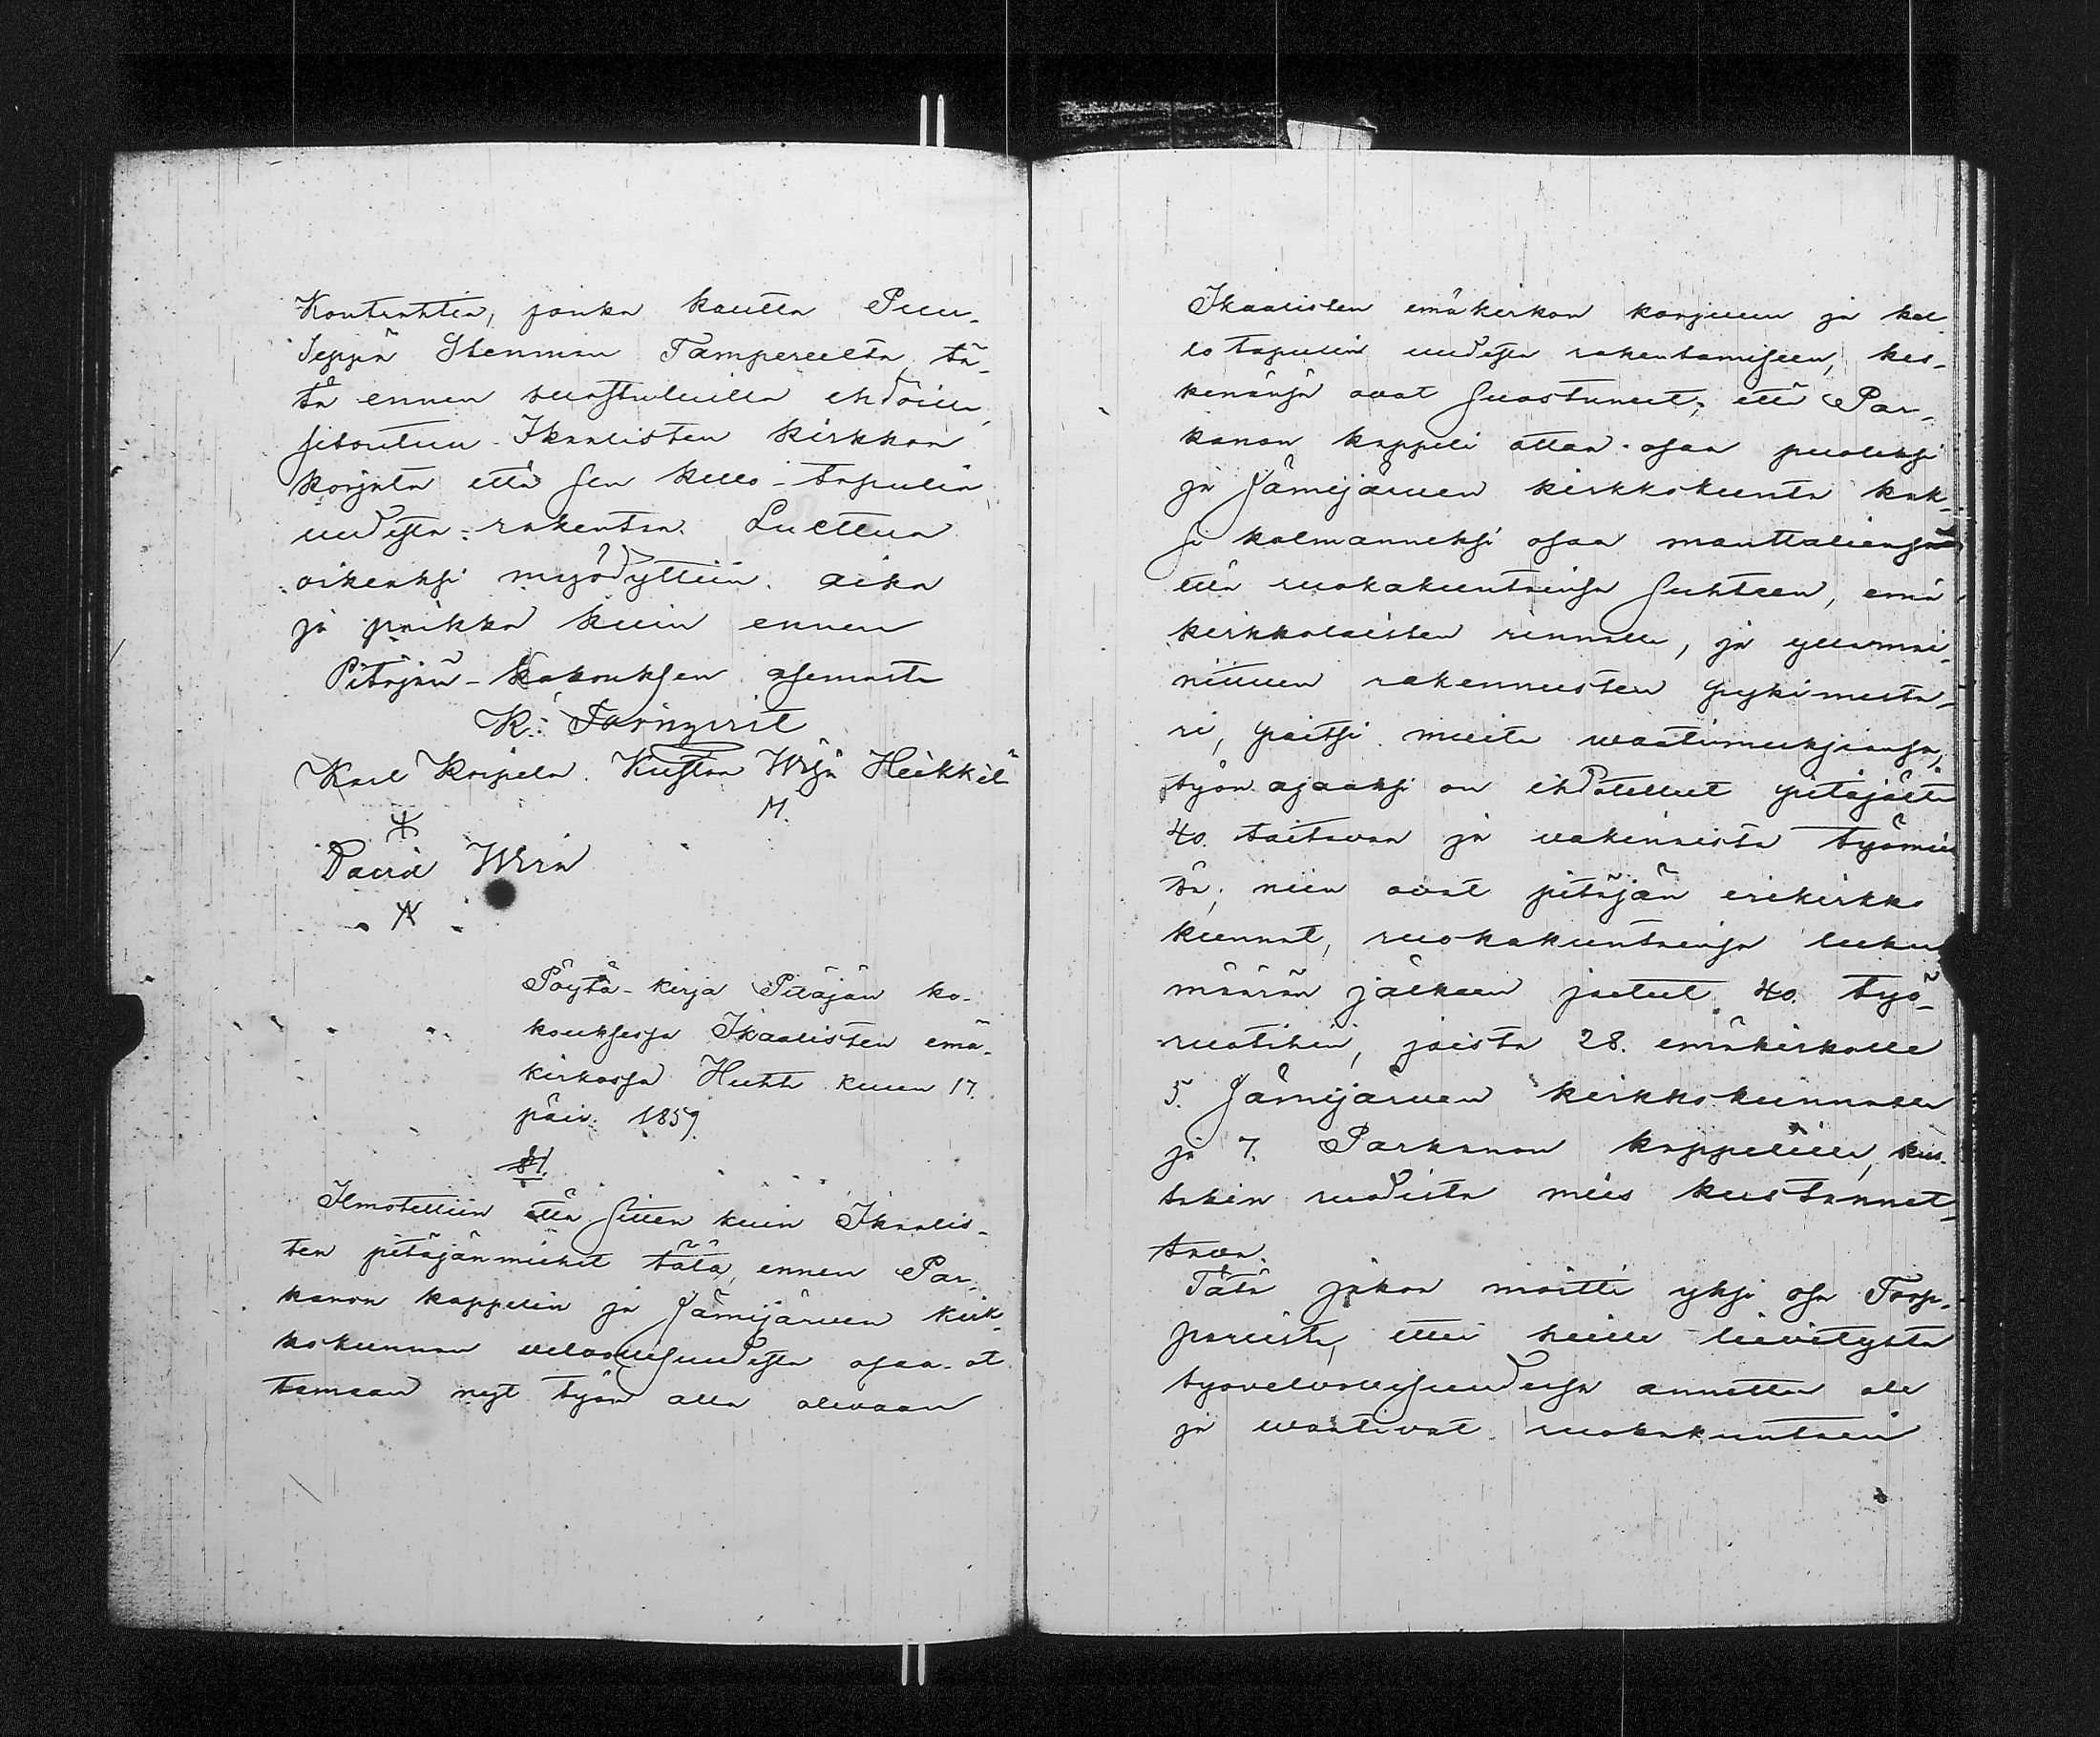 Kontrahtia, jonka kautta Puu-
Seppä Stenman Tampereelta, tä-
tä ennen suostutuilla ehdoilla,
sitoutuu Ikaalisten kirkkoa
korjata että sen kello-tapulia
uudesta rakentaa. Luettua
oikeaksi myödyttiin. aika
ja paikka kuin ennen
Pitäjän-Kokouksen asemasta
K.
Karl Korpela. Kustaa Heikkilä
M.
David
Pöytä-kirja Pitäjän ko-
kouksessa Ikaalisten emä-
kirkossa Huht kuun 17.
päiv: 1859.
§1.
Ilmotettiin että sitten kuin Ikaalis-
ten pitäjänmiehet tätä ennen Par-
kanon kappelin ja Jämijärven kirk-
kokunnan velvollisuudesta osaa-ot
tamaan nyt työn alla olevaan
Ikaalisten emäkirkon korjuun ja kel-
lo tapulin uudesta rakentamiseen, kes-
kenänsä ovat suostuneet; että Par-
kanon kappeli ottaa osaa puoleksi
ja Jämijärven kirkkokunta kak-
si kolmanneksi osaa manttaliensa
että ruokakuntainsa suhteen, emä
kirkkolaisten rinnalla, ja yllämai-
nittuen rakennusten
ri, paitsi muita waatimuksiansa,
työn ajaaksi on ehdotellut pitäjältä
40. taitavaa ja vakinaista työmies
tä; niin ovat pitäjän erikirkko
kunnat, ruokakuntainsa luku
määrän jälkeen jaetut 40. työ-
ruotihin, joista 28. emäkirkolle
5. Jämijärven kirkkokunnalle
ja 7. Parkanon kappelille, kus-
takin ruodista mies kustannet-
tava.
Tätä jakoa moitti yksi osa Torp-
pareista, ettei heille liivitystä
työvelvollisuudessa annettu ole
ja waativat ruokakuntain